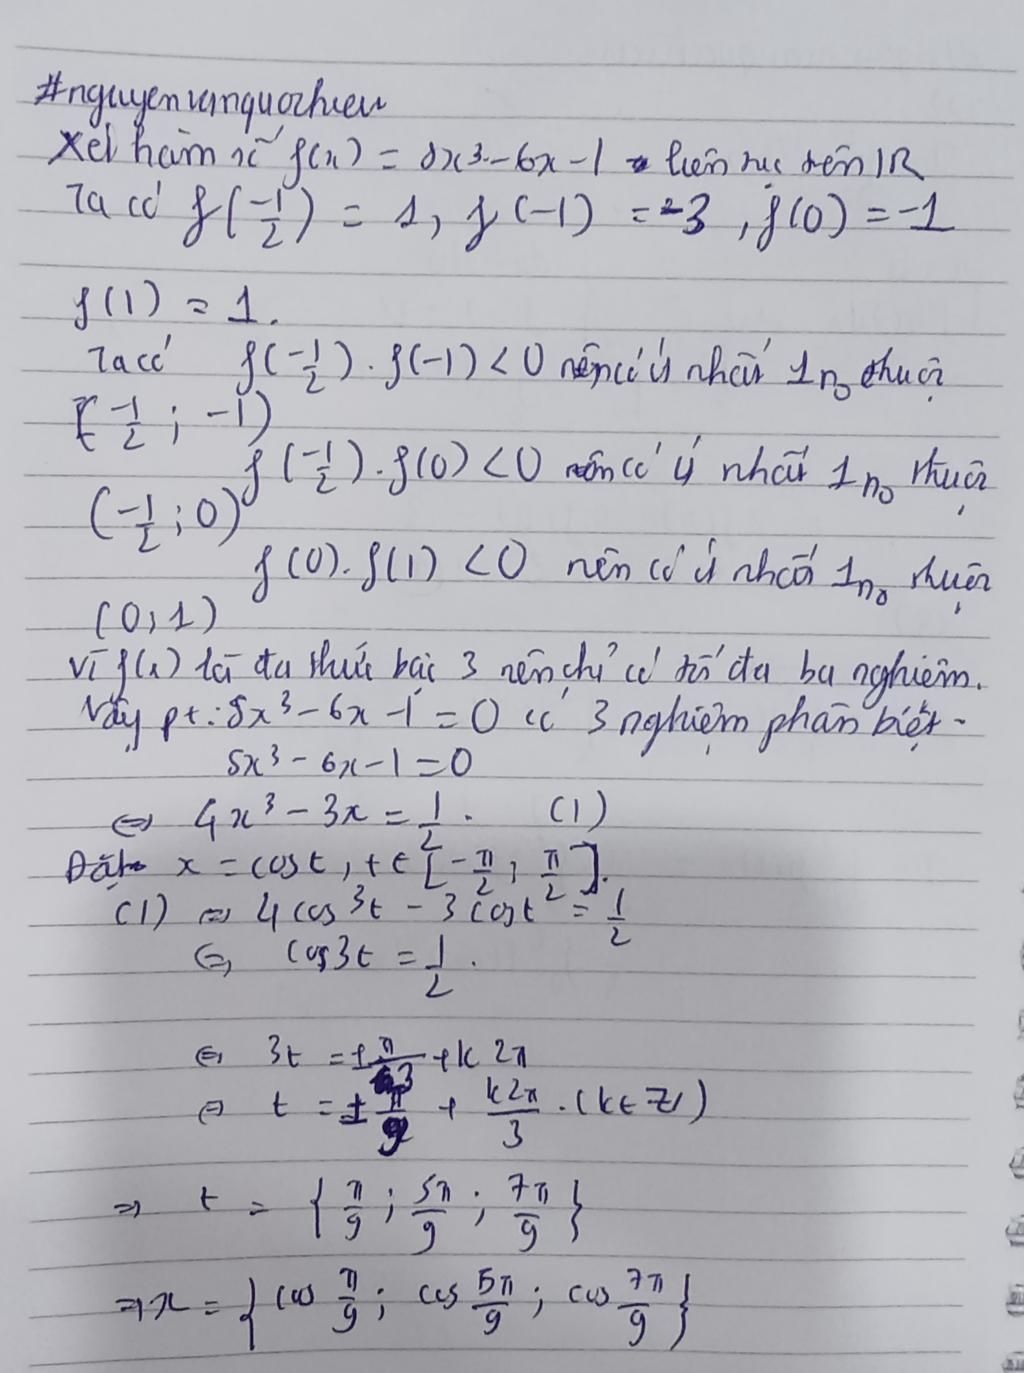 #nguyenvanquochieu
Xét hàm số f(x) = 8x³ - 6x - 1 liên tục trên IR
Ta có f(-1/2) = 1, f(-1) = -3, f(0) = -1
f(1) = 1.
Ta có f(-1/2).f(-1) < 0 nên có ít nhất 1 n₀ thuộc
(-1/2; -1)
f(-1/2).f(0) < 0 nên có ít nhất 1 n₀ thuộc
(-1/2; 0)
f(0).f(1) < 0 nên có ít nhất 1 n₀ thuộc
(0; 1)
Vì f(x) là đa thức bậc 3 nên chỉ có tối đa ba nghiệm.
Vậy pt: 8x³ - 6x - 1 = 0 có 3 nghiệm phân biệt.
8x³ - 6x - 1 = 0
⇔ 4x³ - 3x = 1/2. (1)
Đặt x = cost, t ∈ [-π/2; π/2].
(1) ⇔ 4cos³t - 3cost = 1/2
⇔ cos3t = 1/2.
⇔ 3t = ±π/3 + k2π
⇔ t = ±π/9 + k2π/3. (k ∈ Z)
⇒ t = {π/9; 5π/9; 7π/9}
⇒ x = {cos π/9; cos 5π/9; cos 7π/9}